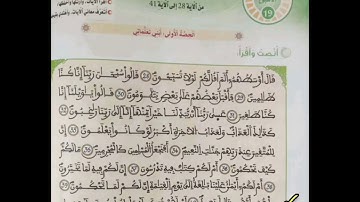 من الآية 28 إلى الآية 41
19
أقرأ الآيات، وأرتلها وأحفظها
أتعرف معاني الآيات
الحصة الأولى: أبني تعلماتي
أنصت وأقرأ:
قال أوسطهم ألم أقل لكم لولا تسبحون 28 قالوا سبحن ربنا إنا كنا
ظلمين 29 فأقبل بعضهم على بعض يتلومون 30 قالوا يويلنا إنا
كنا طغين 31 عسى ربنا أن يبدلنا خيرا منها إنا إلى ربنا رغبون 32
كذلك العذاب ولعذاب الآخرة أكبر لو كانوا يعلمون 33 إن
للمتقين عند ربهم جنت النعيم 34 أفنجعل المسلمين كالمجرمين 35 ما لكم
كيف تحكمون 36 أم لكم كتب فيه تدرسون 37 إن لكم فيه لما تخيرون
38 أم لكم أيمن علينا بلغة إلى يوم القيمة إن لكم لما تحكمون 39